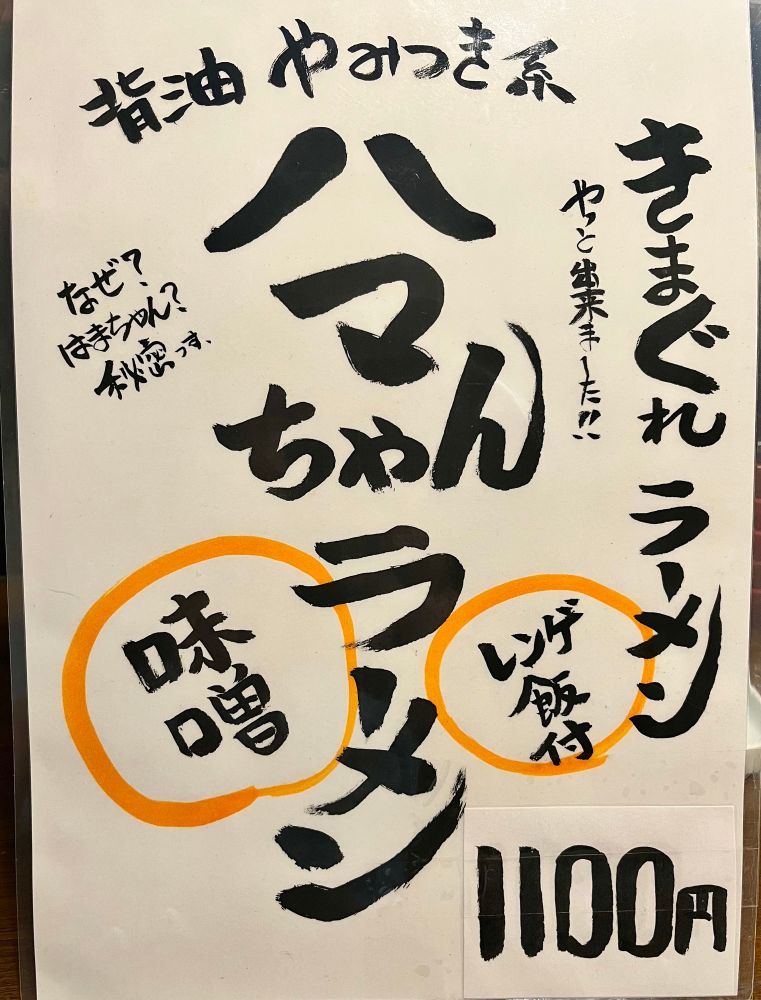 きまぐれラーメン
やっと出来ました!!
背油 やみつき系
ハマちゃんラーメン
なぜ?
はまちゃん?
秘密っす、
味噌
レンゲ飯付
1100円